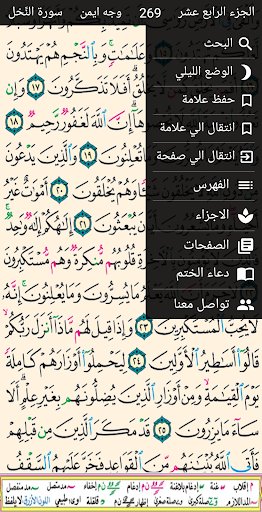 الجزء الرابع عشر
269
وجه ايمن
سورة النَّحل
البحث
الوضع الليلي
حفظ علامة
انتقال الي علامة
انتقال الي صفحة
الفهرس
الاجزاء
الصفحات
دعاء الختم
تواصل معنا
وَعَلَٰمَٰتٍ وَبِٱلنَّجْمِ هُمْ يَهْتَدُونَ
أَفَلَا تَذَكَّرُونَ ١٧ وَإِن
إِنَّ ٱللَّهَ لَغَفُورٌ رَّحِيمٌ ١٨
تُعْلِنُونَ ١٩ وَٱلَّذِينَ يَدْعُونَ
وَهُمْ يُخْلَقُونَ ٢٠ أَمْوَٰتٌ غَيْرُ
يُبْعَثُونَ ٢١ إِلَٰهُكُمْ إِلَٰهٌ وَٰحِدٌ
قُلُوبُهُم مُّنكِرَةٌ وَهُم مُّسْتَكْبِرُونَ
يَعْلَمُ مَا يُسِرُّونَ وَمَا يُعْلِنُونَ إِنَّهُۥ
لَا يُحِبُّ ٱلْمُسْتَكْبِرِينَ ٢٣ وَإِذَا قِيلَ لَهُم مَّاذَآ أَنزَلَ رَبُّكُمْ
قَالُوٓا۟ أَسَٰطِيرُ ٱلْأَوَّلِينَ ٢٤ لِيَحْمِلُوٓا۟ أَوْزَارَهُمْ كَامِلَةً
يَوْمَ ٱلْقِيَٰمَةِ وَمِنْ أَوْزَارِ ٱلَّذِينَ يُضِلُّونَهُم بِغَيْرِ عِلْمٍ أَلَا
سَآءَ مَا يَزِرُونَ ٢٥ قَدْ مَكَرَ ٱلَّذِينَ مِن قَبْلِهِمْ
فَأَتَى ٱللَّهُ بُنْيَٰنَهُم مِّنَ ٱلْقَوَاعِدِ فَخَرَّ عَلَيْهِمُ ٱلسَّقْفُ